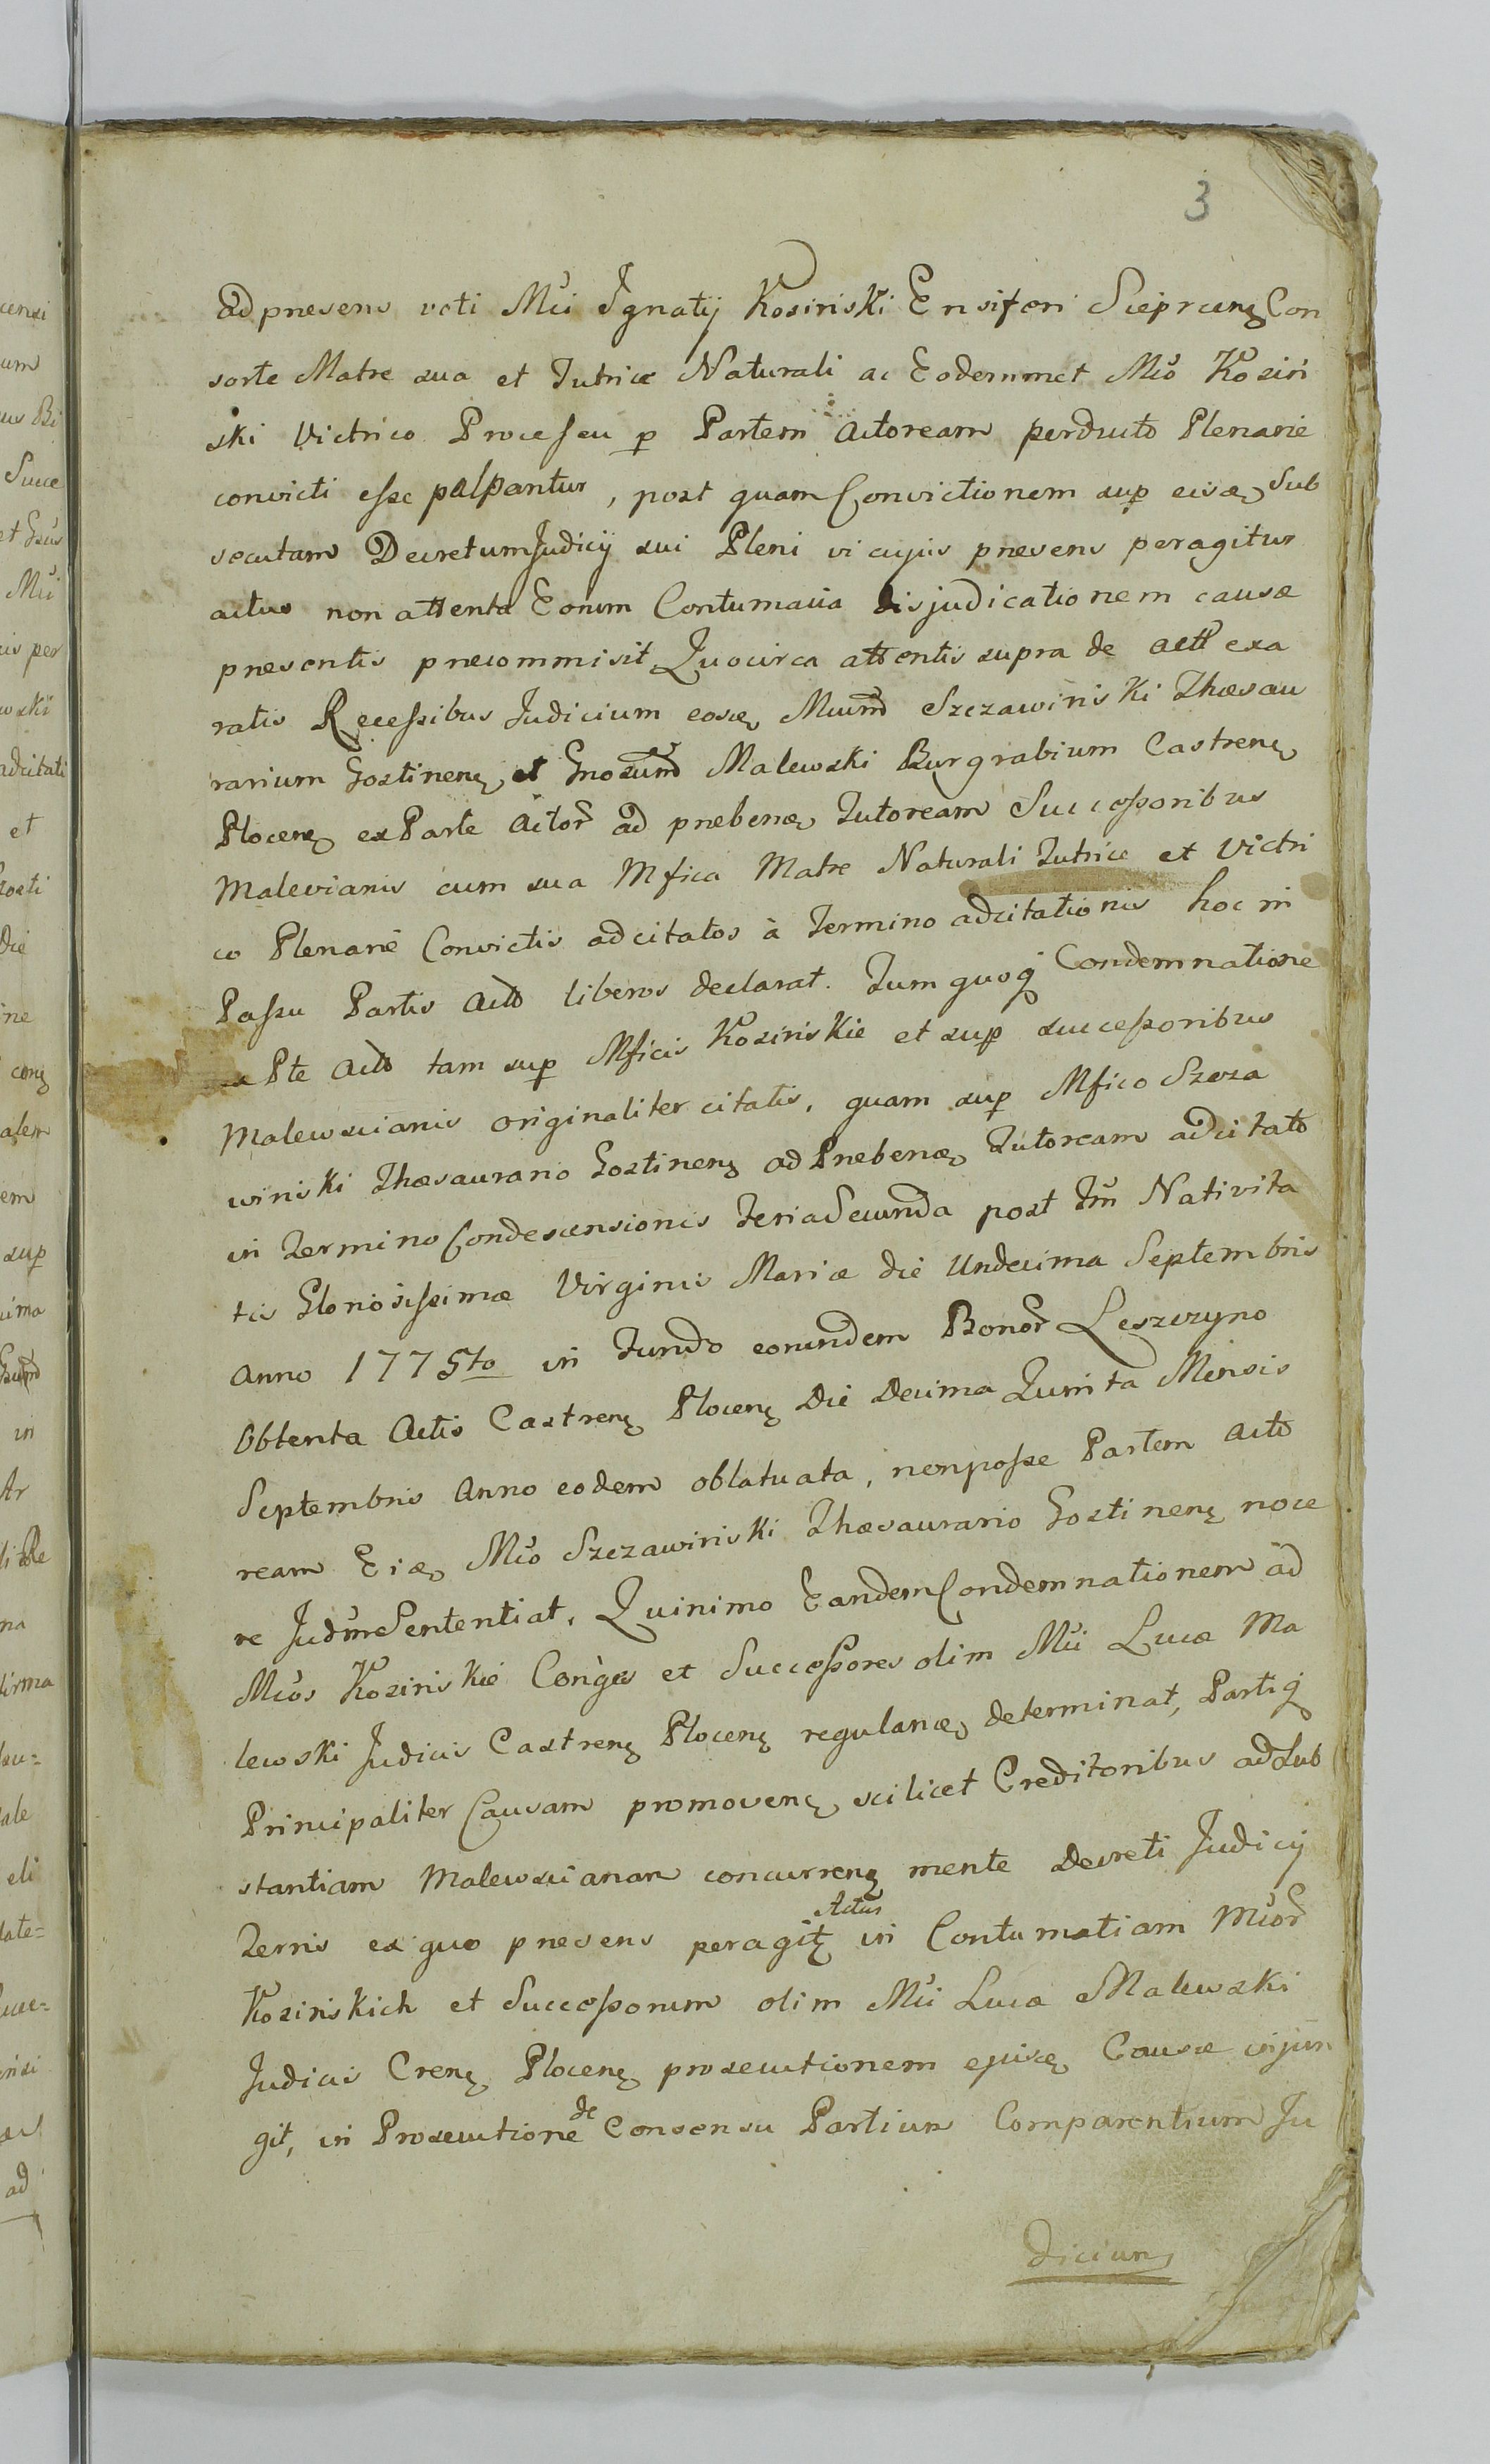 3
ad presens voti Mci Ignatij Kosinski Ensiferi Sieprcens Con
sorte Matre sua et Tutrice Naturali ac Eodemmet Mco Kosin
ski Vitrico Processu p Partem Actoream perducto Plenarie
convicti esse palpantur, post quam Convictionem sup eisdem Sub
secutam Decretum Judicij sui Pleni vi cujus presens peragitur
actus non attenta Eorum Contumacia disjudicationem causæ
presentis precommisit, Quocirca attentis supra de actt exa
ratis Recessibus Judicium eosdem Mcum Szczawinski Thesau
rarium Gostinens et Gnosum Malewski Burgrabium Castrens
Plocens ex Parte Actor ad prebendam Tutoream Successoribus
Malevianis cum sua Mfica Matre Naturali Tutrice et Vitri
co Plenarie Convictis adcitatos à Termino adcitationis hoc in
Passu Partis Acto liberos declarat. Tum quoq Condemnatione
ex Pte Acto tam sup Mficis Kosinskie et sup successoribus
Malewscianis originaliter citatis, quam sup Mfico Szcza
winski Thesaurario Gostinens ad Prebendam Tutoream adcitato
in Termino Condescensionis Feria Secunda post Ftm Nativita
tis Gloriosissimæ Virginis Mariæ die Undecima Septembris
Anno 1775to in Fundo eorundem Bonor Leszczyno
Obtenta Actis Castrens Plocens Die Decima Quinta Mensis
Septembris Anno eodem oblatuata, non posse Partem Acto
ream Eidem Mco Szczawinski Thesaurario Gostinens noce
re Judm Sententiat, Quinimo Eandem Condemnationem ad
Mcos Kosinskie Conges et Successores olim Mci Lucæ Ma
lewski Judicis Castrens Plocens regulandam determinat, Partiq
Principaliter Causam promoven scilicet Creditoribus ad Sub
stantiam Malewscianam concurrens mente Decreti Judicij
Terris ex quo presens peragit Actus in Contumatiam Mcor
Kosinskich et Successorum olim Mci Lucæ Malewski
Judicis Crens Plocens prosecutionem ejusdem Causæ injun
git, in Prosecutione de Consensu Partium Comparentium Ju
dicium